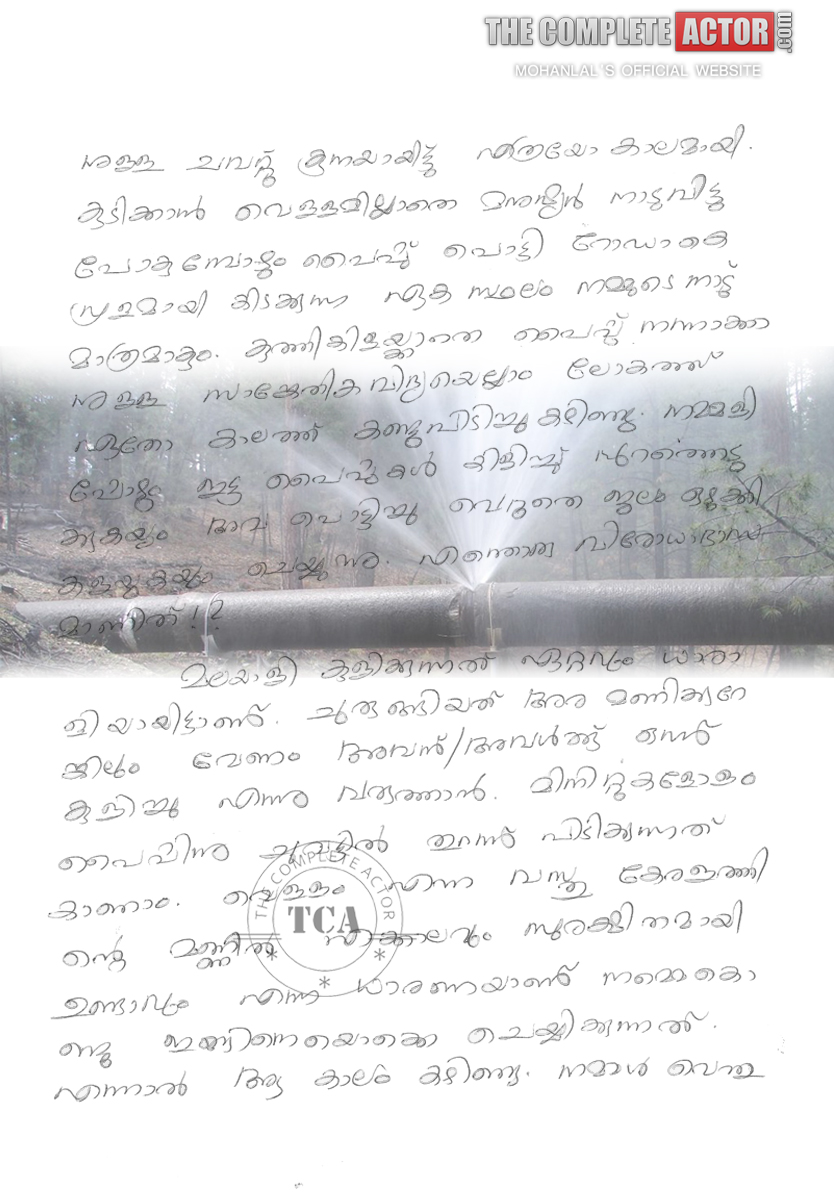 THE COMPLETE ACTOR.com
MOHANLAL'S OFFICIAL WEBSITE
ത്തുള്ള ചവറ്റു കൂനയായിട്ട് എത്രയോ കാലമായി.
കുടിക്കാൻ വെള്ളമില്ലാതെ മനുഷ്യൻ നാടുവിട്ടു
പോകുമ്പോഴും പൈപ്പ് പൊട്ടി റോഡാകെ
പ്രളമായി കിടക്കുന്ന ഏക സ്ഥലം നമ്മുടെ നാട്ടു്
മാത്രമാകും. കുത്തികിളയ്ക്കാതെ പൈപ്പ് നന്നാക്കാ
നുള്ള സാങ്കേതികവിദ്യയെല്ലാം ലോകത്ത്
ഏതോ കാലത്ത് കണ്ടുപിടിച്ചു കഴിഞ്ഞു. നമ്മളി
പ്പോഴും ഇട്ട പൈപ്പുകൾ കിളിച്ച് പുറത്തെടു
ക്കുകയും അവ പൊട്ടിച്ചു വെറുതെ ജലം ഒഴുക്കി
കളയുകയും ചെയ്യുന്നു. എന്തൊരു വിരോധാഭാസ
മാണിത്!?
മലയാളി കുളിക്കുന്നത് ഏറ്റവും ധാരാ
ളിയായിട്ടാണ്. ചുരുങ്ങിയത് അര മണിക്കൂറെ
ങ്കിലും വേണം അവന്/അവൾക്ക് ഒന്ന്
കുളിച്ചു എന്നു വരുത്താൻ. മിനിറ്റുകളോളം
പൈപ്പിനു ചുവട്ടിൽ തുറന്ന് പിടിക്കുന്നത്
കാണാം. വെള്ളം എന്ന വസ്തു കേരളത്തി
ന്റെ മണ്ണിൽ എക്കാലവും സുരക്ഷിതമായി
ഉണ്ടാവും എന്ന ധാരണയാണ് നമ്മെകൊ
ണ്ടു ഇങ്ങിനെയൊക്കെ ചെയ്യിക്കുന്നത്.
എന്നാൽ ആ കാലം കഴിഞ്ഞു. നമ്മൾ വെന്തു
THE COMPLETE ACTOR
TCA